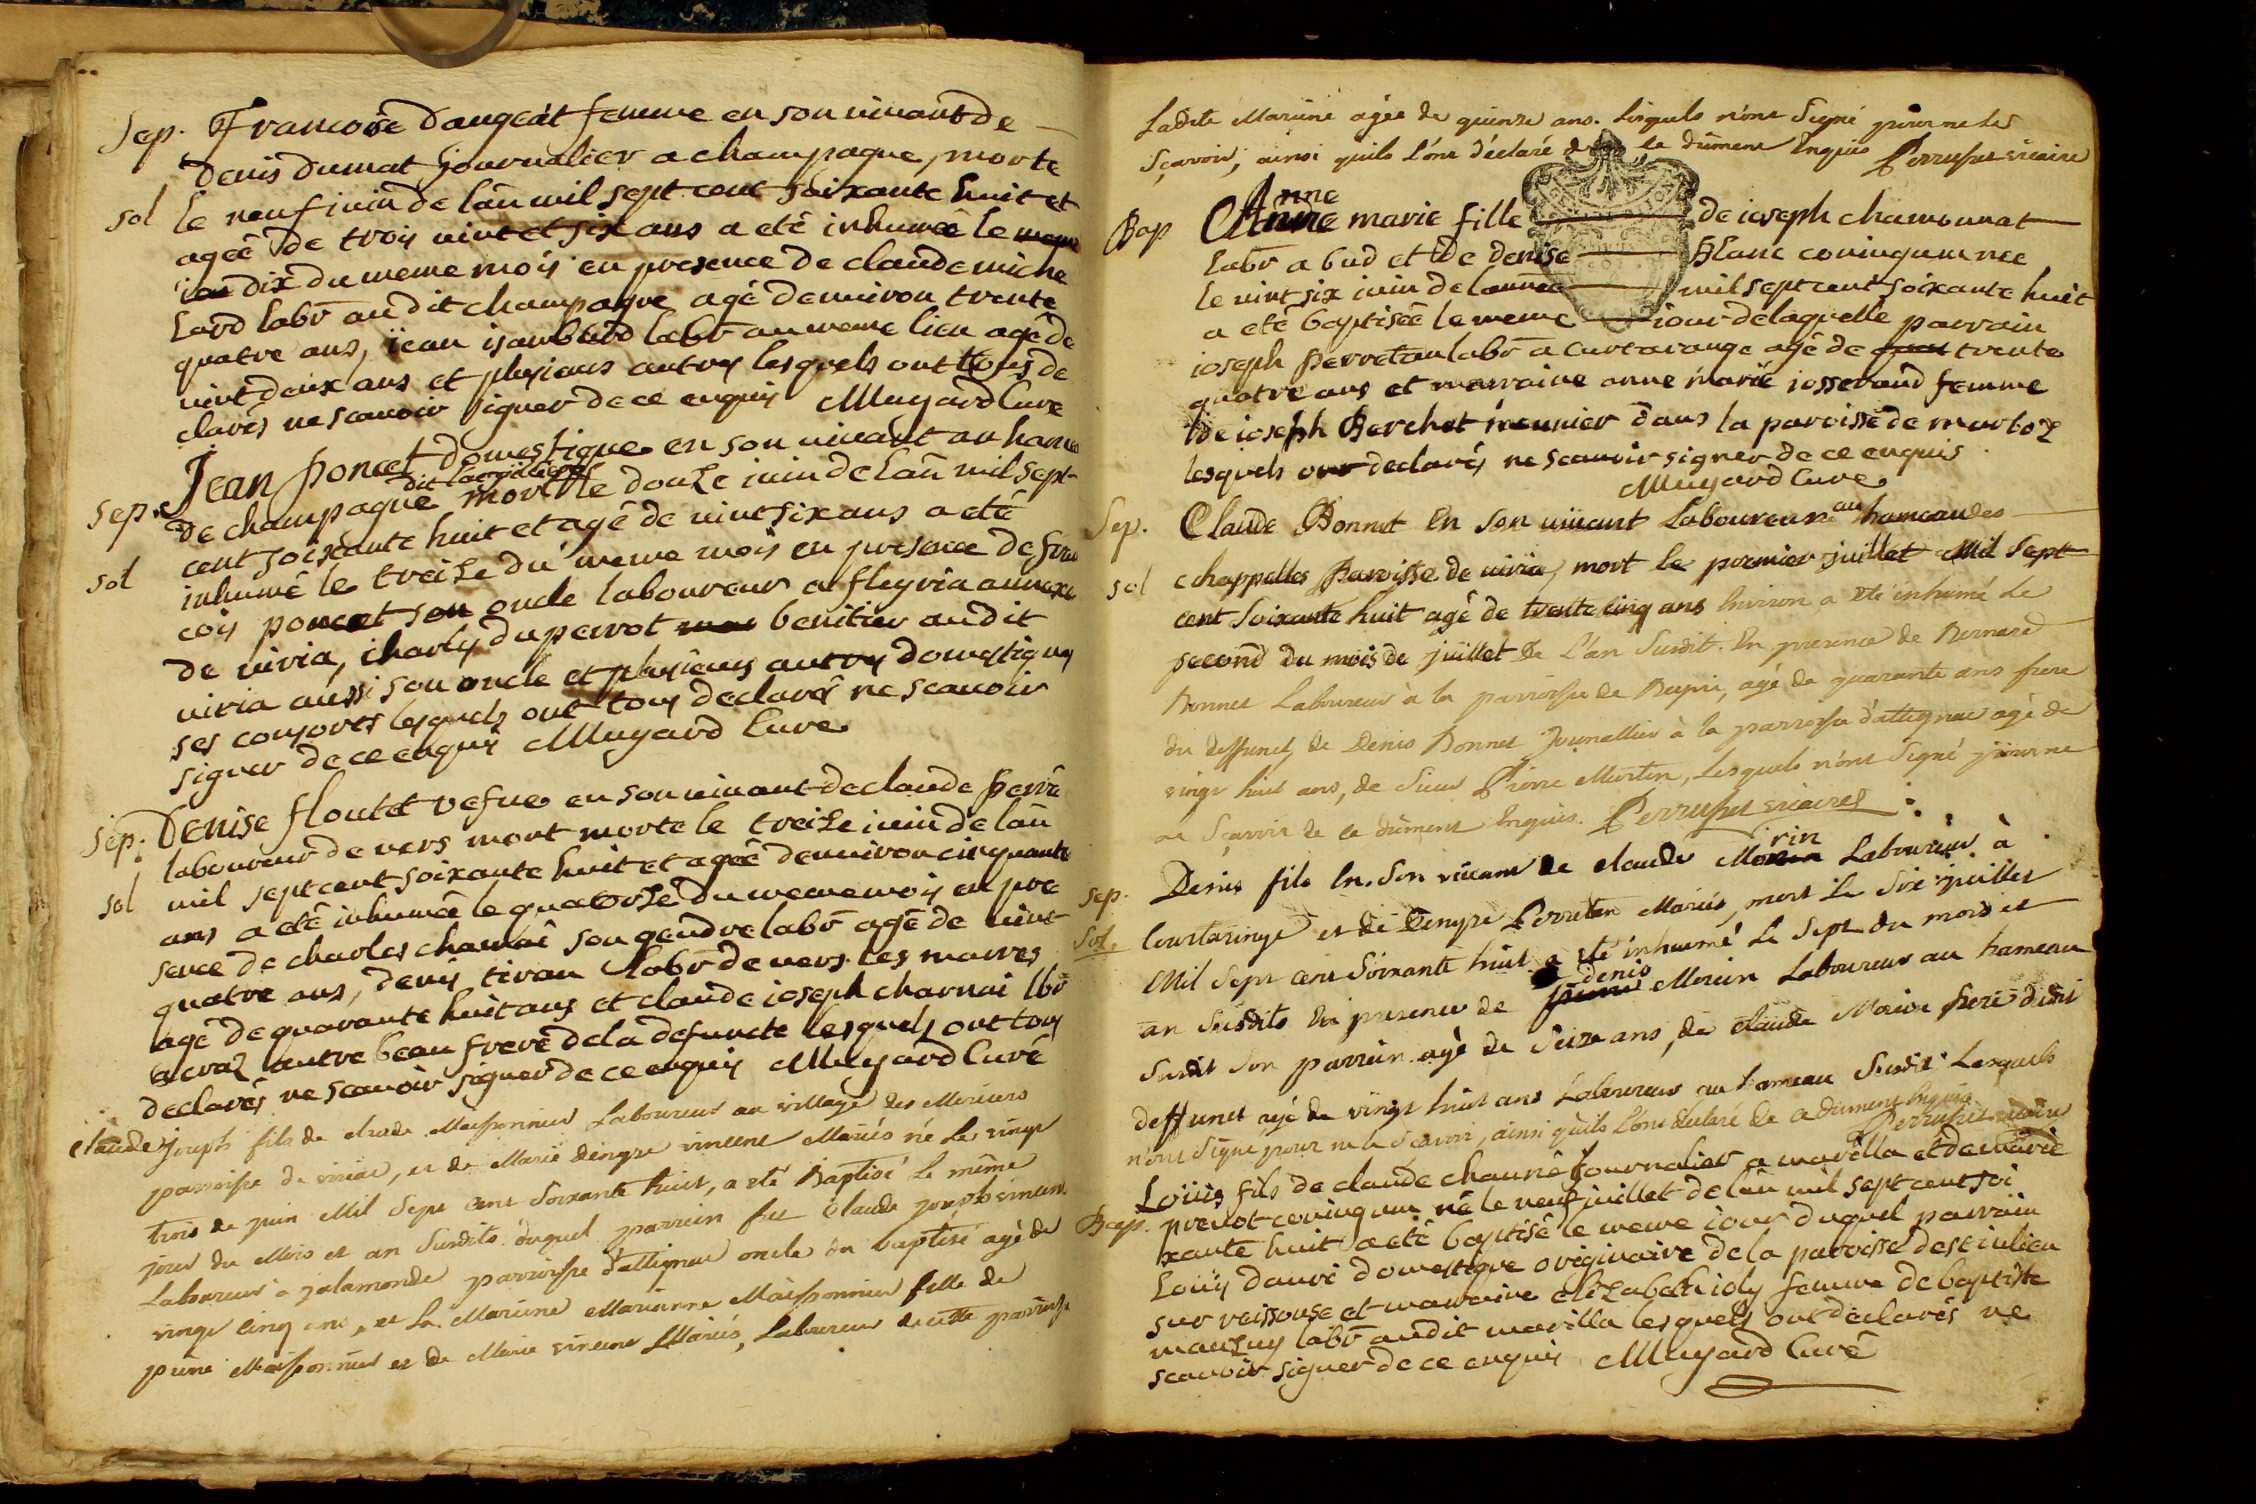 Sep. Francoise dangeat femme en son vivant de
denis dumat journalier a champagne, morte
sol le neuf juin de lan mil sept cent soixante huit et
agée de trois vint et six ans a eté inhumée le
dix du meme mois en presence de claude miche
lard labr audit champagne agé denviron trente
quatre ans, jean isambard labr au meme lieu agé de
vint deux ans et plusieurs autres lesquels ont tous de
clarés ne scavoir signer de ce enquis Mugard Curé
Sep. Jean Poncet domestique en son vivant au hame
dit
de champagne mort le douze juin de lan mil sept
cent soixante huit et agé de vint six ans a eté
sol inhumé le treize du meme mois en presence de fran
cois poncet son oncle laboureur a fleyria annexe
de viria, charles duperrot benitier audit
viria aussi son oncle et plusieurs autres domestiques
ses consorts lesquels ont tous declarés ne scavoir
signer de ce enquis Mugard Curé
Sep. Denise floutet vefue en son vivant de claude perre
laboureur de vers mont morte le treize juin de lan
sol mil sept cent soixante huit et agée denviron cinquante
ans a eté inhumée le quatorze du meme mois en pre
sence de charles charnai son gendre labr agé de vint
quatre ans, denis tiran labr de vers les mares
agé de quarante huit ans et claude joseph charnai lbr
a craz autre beau frere de la defuncte lesquels ont tous
declarés ne scavoir signer de ce enquis Mugard Curé
claude joseph fils de claude Maissonnier Laboureur au village des
parroisse de viriat, et de Marie denyse vincent Mariés né le vingt
trois de juin Mil Sept cent Soixante huit, a eté Baptisé le même
jour du Mois et an Susdits duquel parrein fut Claude joseph vincent
Laboureur à jalamonde parroisse d'attignac oncle du baptisé agé de
vingt cinq ans, et la Mareine Marianne Maissonnier fille de
Maissonnier et de Marie vincent Mariés, Laboureur de cette parroisse
Ladite Mareine agée de quinze ans. Lesquels n'ont Signé pour ne le
Sçavoir, ainsi quils l'ont déclaré de ce dûment Enquis Perruset vicaire
nne
Bap Anne marie fille de joseph chamonnat
labr a bud et de denise Blanc conjugum nee
le vint six juin de lannee mil sept cent soixante huit
a eté baptisée le meme jour de laquelle parrain
joseph perretan labr a curtarange agé de trente
quatre ans et marraine anne marie josserand femme
de joseph Berchet meunier dans la paroisse de marboz
lesquels ont declarés ne scavoir signer de ce enquis
Mugard Curé
Sep. Claude Bonnet En son vivant Laboureur au hameau des
sol chappelles Paroisse de viria, mort le premier juillet Mil Sept
cent Soixante huit agé de trente cinq ans Environ a eté inhumé le
second du mois de juillet de L'an Susdit. En presence de Bernard
Bonnet Laboureur à la parroisse de, agé de quarante ans frere
du deffunct, de Denis Bonnet Journallier à la parroisse d'attignac agé de
vingt huit ans, de Sieur Pierre Martin, Lesquels n'ont Signé pour ne
Sçavoir de ce dûment Enquis. Perruset vicaire
Sep. Denis fils En Son vivant de claude Morin rin Laboureur à
Sol. Courtaringe et de Denyse Perretan Mariés, mort le Six juillet
Mil Sept cent Soixante huit a eté inhumé le Sept du mois et
an Susdits En presence de denis Morin Laboureur au hameau
Susdit Son parrein agé de Seize ans, de claude Morin frere dudit
deffunct agé de vingt huit ans Laboureur au hameau Susdit. Lesquels
n'ont Signé pour ne le Sçavoir, ainsi quils l'ont declaré de ce dûment Enquis
Perruset vicaire
Loüis fils de claude chauné journalier a marilla et de marie
Bap. prevot conjugum né le neuf juillet de lan mil sept cent soi
xante huit a eté baptisé le meme jour duquel parrain
Loüis dauré domestique originaire de la paroisse de st julien
sur reissouse et maraine elizabeth joly femme de baptiste
labr audit marilla lesquels ont declarés ne
scavoir signer de ce enquis Mugard Curé